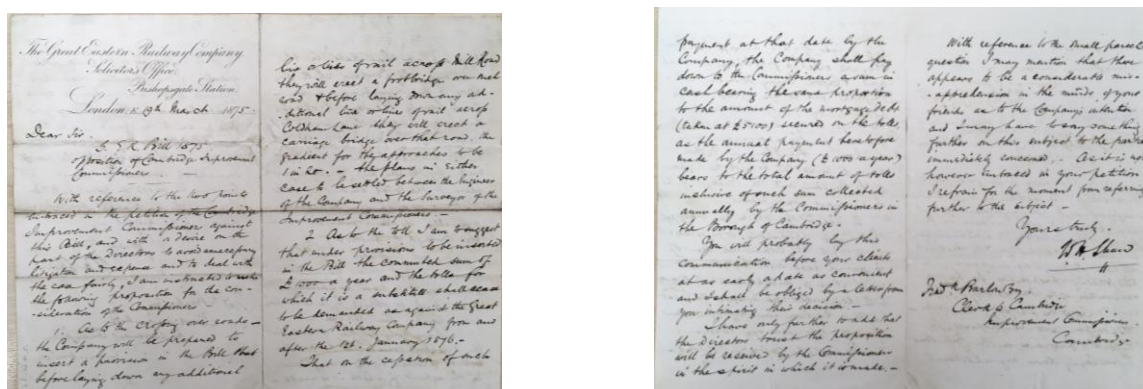 The Great Eastern Railway Company
Solicitor's Office
Bishopsgate Station
London, E. 19th March 1875
Dear Sir,
G. E. R. Bill 1875
opposition of Cambridge Improvement
Commissioners
With reference to the two points
embraced in the petition of the Cambridge
Improvement Commissioners against
this Bill, and with a desire on the
part of the Directors to avoid unnecessary
litigation and expense and to deal with
the case fairly, I am instructed to make
the following proposition for the con-
sideration of the Commissioners
1. As to the crossing over roads -
the Company will be prepared to
insert a provision in the Bill that
before laying down any additional
line or lines of rail across Mill Road
they will erect a footbridge over such
road & before laying down any ad-
ditional line or lines of rail across
Coldham Lane they will erect a
carriage bridge over that road, the
gradient for the approaches to be
1 in 20. - the plans in either
case to be settled between the Engineer
of the Company and the Surveyor of the
Improvement Commissioners. -
2 As to the toll I am to suggest
that under provisions to be inserted
in the Bill the commuted sum of
£1000 a year and the tolls for
which it is a substitute shall cease
to be demanded as against the Great
Eastern Railway Company from and
after the 1st January 1876. -
That on the cessation of such
payment at that date by the
Company, the Company shall pay
down to the Commissioners a sum in
cash bearing the same proportion
to the amount of the mortgage debt
(taken at £5100) secured on the tolls,
as the annual payment heretofore
made by the Company (£1000 a year)
bears to the total amount of tolls
inclusive of such sum collected
annually by the Commissioners in
the Borough of Cambridge.
You will probably lay this
communication before your clients
at as early a date as convenient
and I shall be obliged by a letter from
you intimating their decision -
I have only further to add that
the Directors trust the proposition
will be received by the Commissioners
in the spirit in which it is made. -
With reference to the small parcels
question I may mention that there
appears to be a considerable mis-
apprehension in the minds of your
friends as to the Company's intention
and I may have to say something
further on this subject to the parties
immediately concerned. As it is not
however embraced in your petition
I refrain for the moment from referring
further to the subject -
Yours truly,
W. H. Shaw
Fred. Barlow Esq.
Clerk to Cambridge
Improvement Commissioners
Cambridge